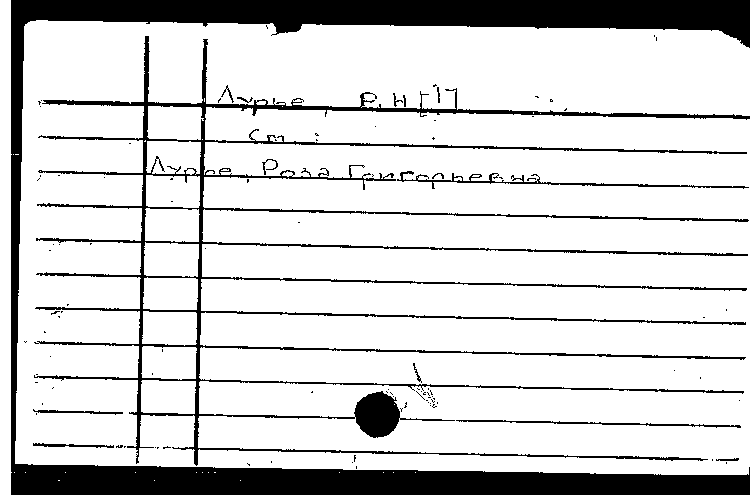 Лурье, Р. Н [1]
См.:
Лурье, Роза Григорьевна